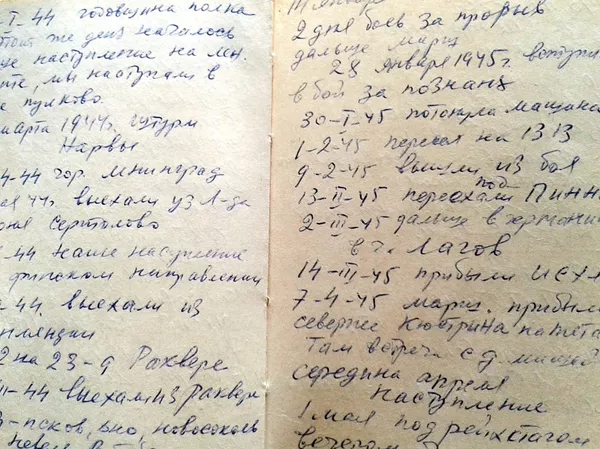 I-44 годовщина полка
этот же день началось
наступление на лен.
мы наступали в
пулково.
марта 1944г. штурм
Нарвы
4-44 гор. ленинград
44г. выехали из Л-да
Сертолово
44 наше наступление
финском направлении
44. выехали из
2 на 23-9 Раквере
44 выехали из Раквере
псков, дно, новосоколь
Невель
2 дня боев за прорыв
дальше марш
28 января 1945г. вступи
в бой за познань
30-I-45 потонула машина
1-2-45 пересел на 13 13
9-2-45 вышли из боя
13-II-45 переехали под Пинн
2-III-45 дальше в германи
в г. Лагов
14-III-45 прибыли
7-4-45 марш. прибыли
севернее Кюстрина на
Там встреча с
середина апреля
наступление
1 мая под рейхстагом
вечером